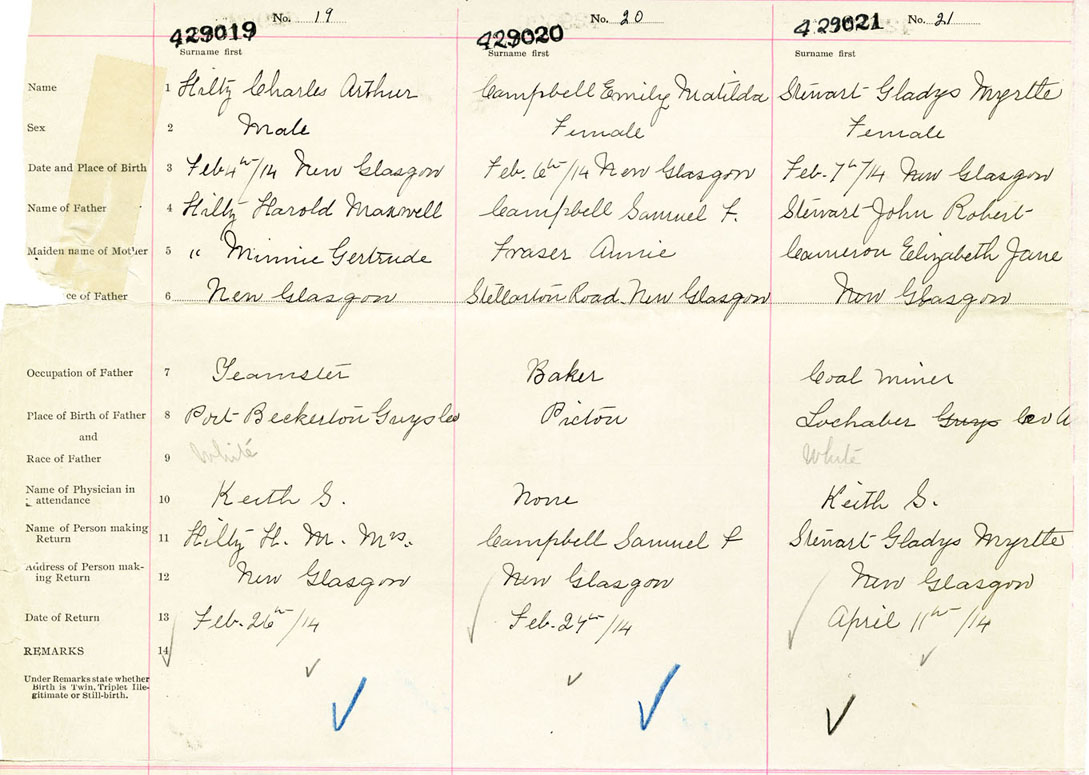 No. 19 No. 20 No. 21
429019 429020 429021
Surname first Surname first Surname first
Name 1 Hiltz Charles Arthur Campbell Emily Matilda Stewart Gladys Myrtle
Sex 2 Male Female Female
Date and Place of Birth 3 Feb 4th/14 New Glasgow Feb. 6th/14 New Glasgow Feb. 7th/14 New Glasgow
Name of Father 4 Hiltz Harold Maxwell Campbell Samuel F. Stewart John Robert
Maiden name of Mother 5 " Minnie Gertrude Fraser Annie Cameron Elizabeth Jane
ce of Father 6 New Glasgow Stellarton Road New Glasgow New Glasgow
Occupation of Father 7 Teamster Baker Coal Miner
Place of Birth of Father 8 Port Beckerton Guys Co Pictou Lochaber Guys Co
and
Race of Father 9 White White
Name of Physician in
attendance 10 Keith G. None Keith G.
Name of Person making
Return 11 Hiltz H. M. Mrs. Campbell Samuel F Stewart Gladys Myrtle
Address of Person mak-
ing Return 12 New Glasgow New Glasgow New Glasgow
Date of Return 13 Feb. 26th/14 Feb. 27th/14 April 11th/14
REMARKS 14
Under Remarks state whether
Birth is Twin, Triplet Ille-
gitimate or Still-birth.